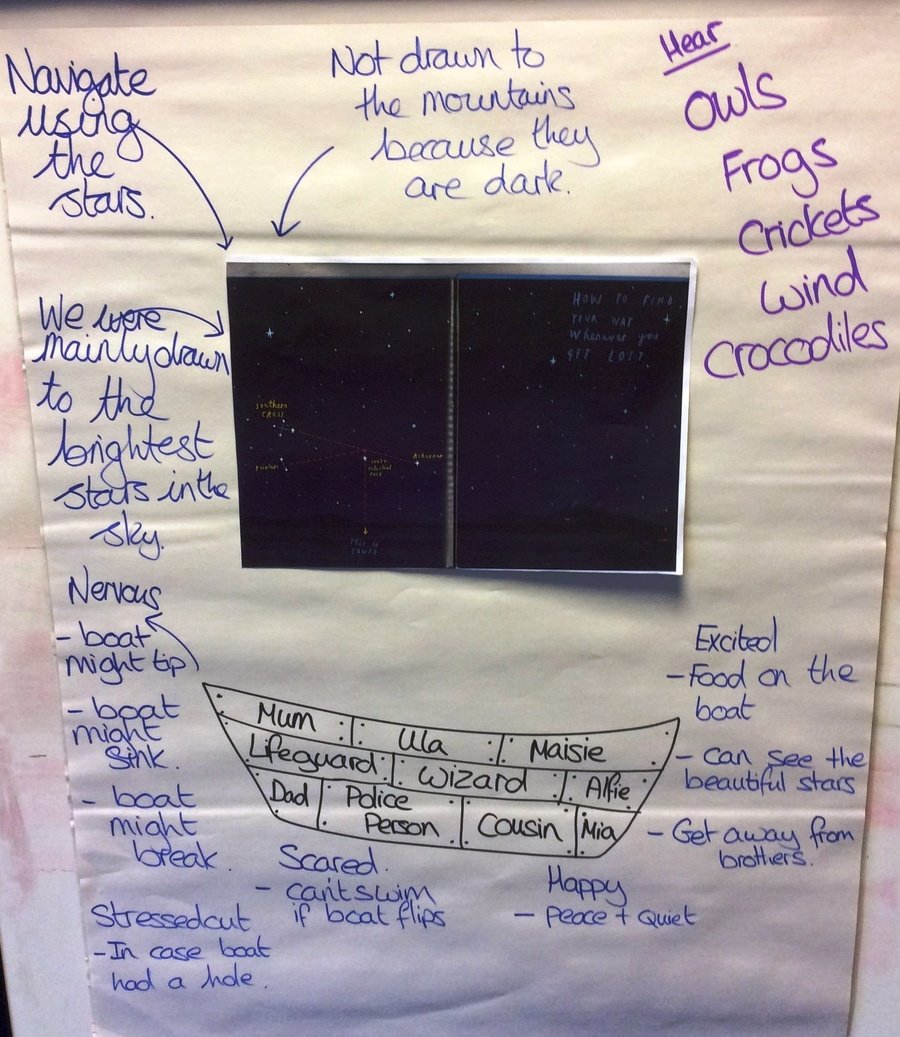 Navigate
using
the
stars.
Not drawn to
the mountains
because they
are dark.
Hear
Owls
Frogs
Crickets
Wind
Crocodiles
We were
mainly drawn
to the
brightest
stars in the
sky.
HOW TO FIND
YOUR WAY
Whenever you
GET LOST
SOUTHERN
CROSS
THIS IS
SOUTH
Nervous
- boat
might tip
- boat
might
sink.
- boat
might
break.
Mum
Ula
Maisie
Lifeguard
Wizard
Alfie
Dad
Police
Person
Cousin
Mia
Excited
- Food on the
boat
- can see the
beautiful stars
- Get away from
brothers.
Scared
- can't swim
if boat flips
Happy
- Peace + Quiet
Stressed cut
- In case boat
had a hole.